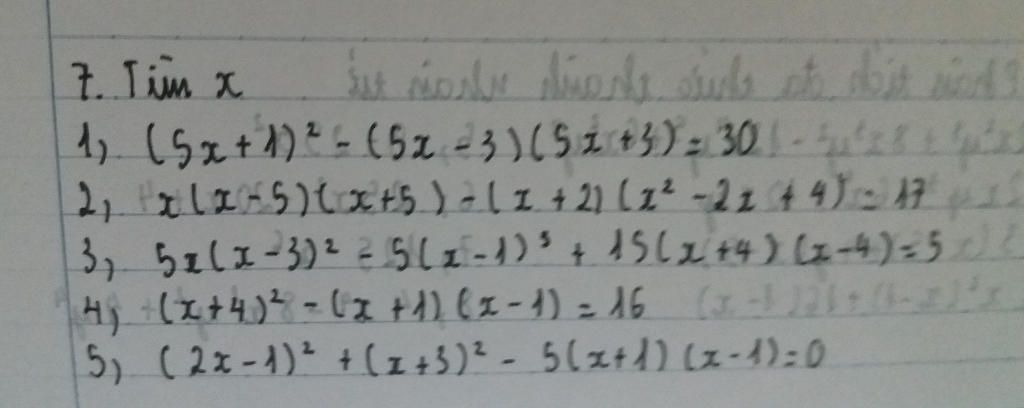 7. Tìm x
1, (5x + 1)² - (5x - 3)(5x + 3) = 30
2, x(x - 5)(x + 5) - (x + 2)(x² - 2x + 4) = 17
3, 5x(x - 3)² - 5(x - 1)³ + 15(x + 4)(x - 4) = 5
4, (x + 4)² - (x + 1)(x - 1) = 16
5, (2x - 1)² + (x + 3)² - 5(x + 1)(x - 1) = 0